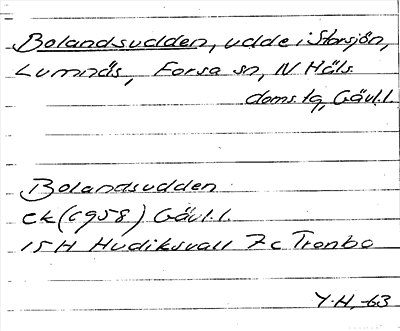 Bolandsudden, udde i Storsjön,
Lumnäs, Forsa sn, N Häls.
doms.tg, Gävl.l.
Bolandsudden
ek (1958) Gävl.l.
15 H Hudiksvall 7c Tronbo
Y.H. -63